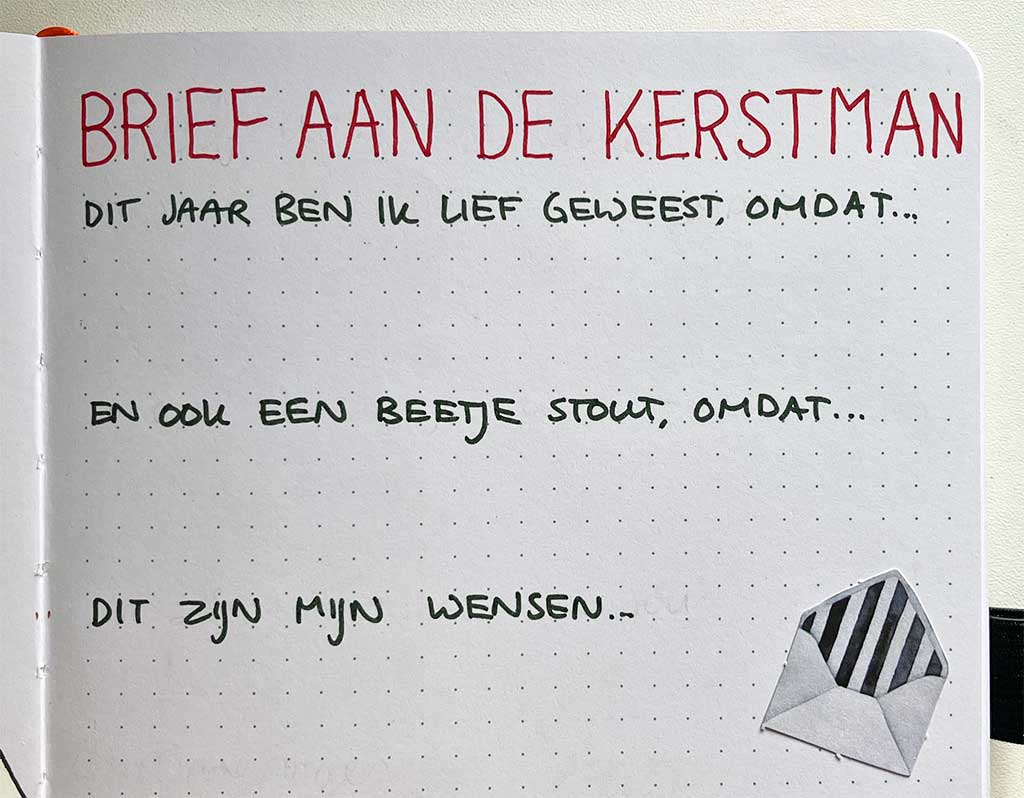 BRIEF AAN DE KERSTMAN
DIT JAAR BEN IK LIEF GEWEEST, OMDAT...
EN OOK EEN BEETJE STOUT, OMDAT...
DIT ZIJN MIJN WENSEN...